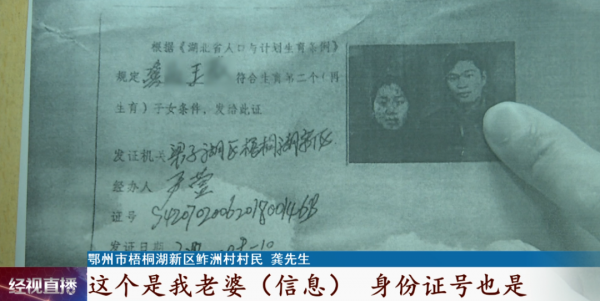 根据《湖北省人口与计划生育条例》
规定 龚 王 符合生育第二个(再
生育)子女条件，发给此证
发证机关 梁子湖区梧桐湖新区
经办人
证号 S42070200620180046B
发证日期
鄂州市梧桐湖新区鲊洲村村民 龚先生
经视直播 这个是我老婆（信息） 身份证号也是